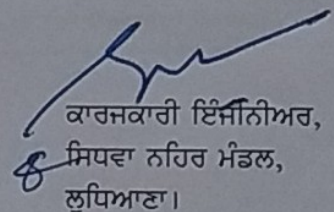 ਕਾਰਜਕਾਰੀ ਇੰਜੀਨੀਅਰ,
ਸਿਧਵਾ ਨਹਿਰ ਮੰਡਲ,
ਲੁਧਿਆਣਾ।